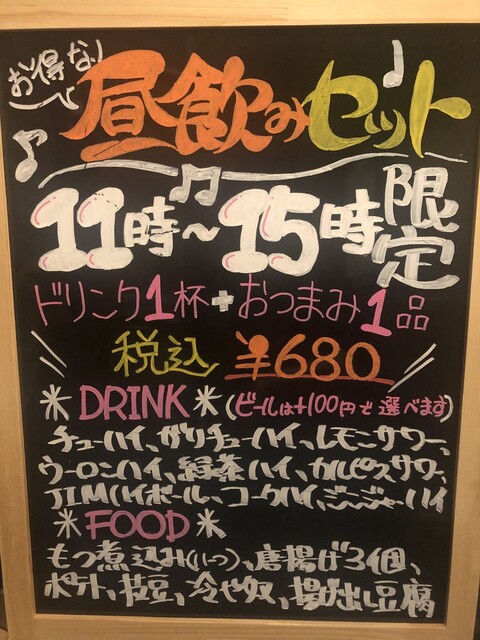 お得な!
昼飲みセット
11時〜15時限定
ドリンク1杯+おつまみ1品
税込 ¥680
*DRINK*(ビールは+100円で選べます)
チューハイ、ガリチューハイ、レモンサワー、
ウーロンハイ、緑茶ハイ、カルピスサワー、
JIMハイボール、コークハイ、ジンジャーハイ
*FOOD*
もつ煮込み(ハーフ)、唐揚げ3個、
ポテト、枝豆、冷や奴、揚げ出し豆腐